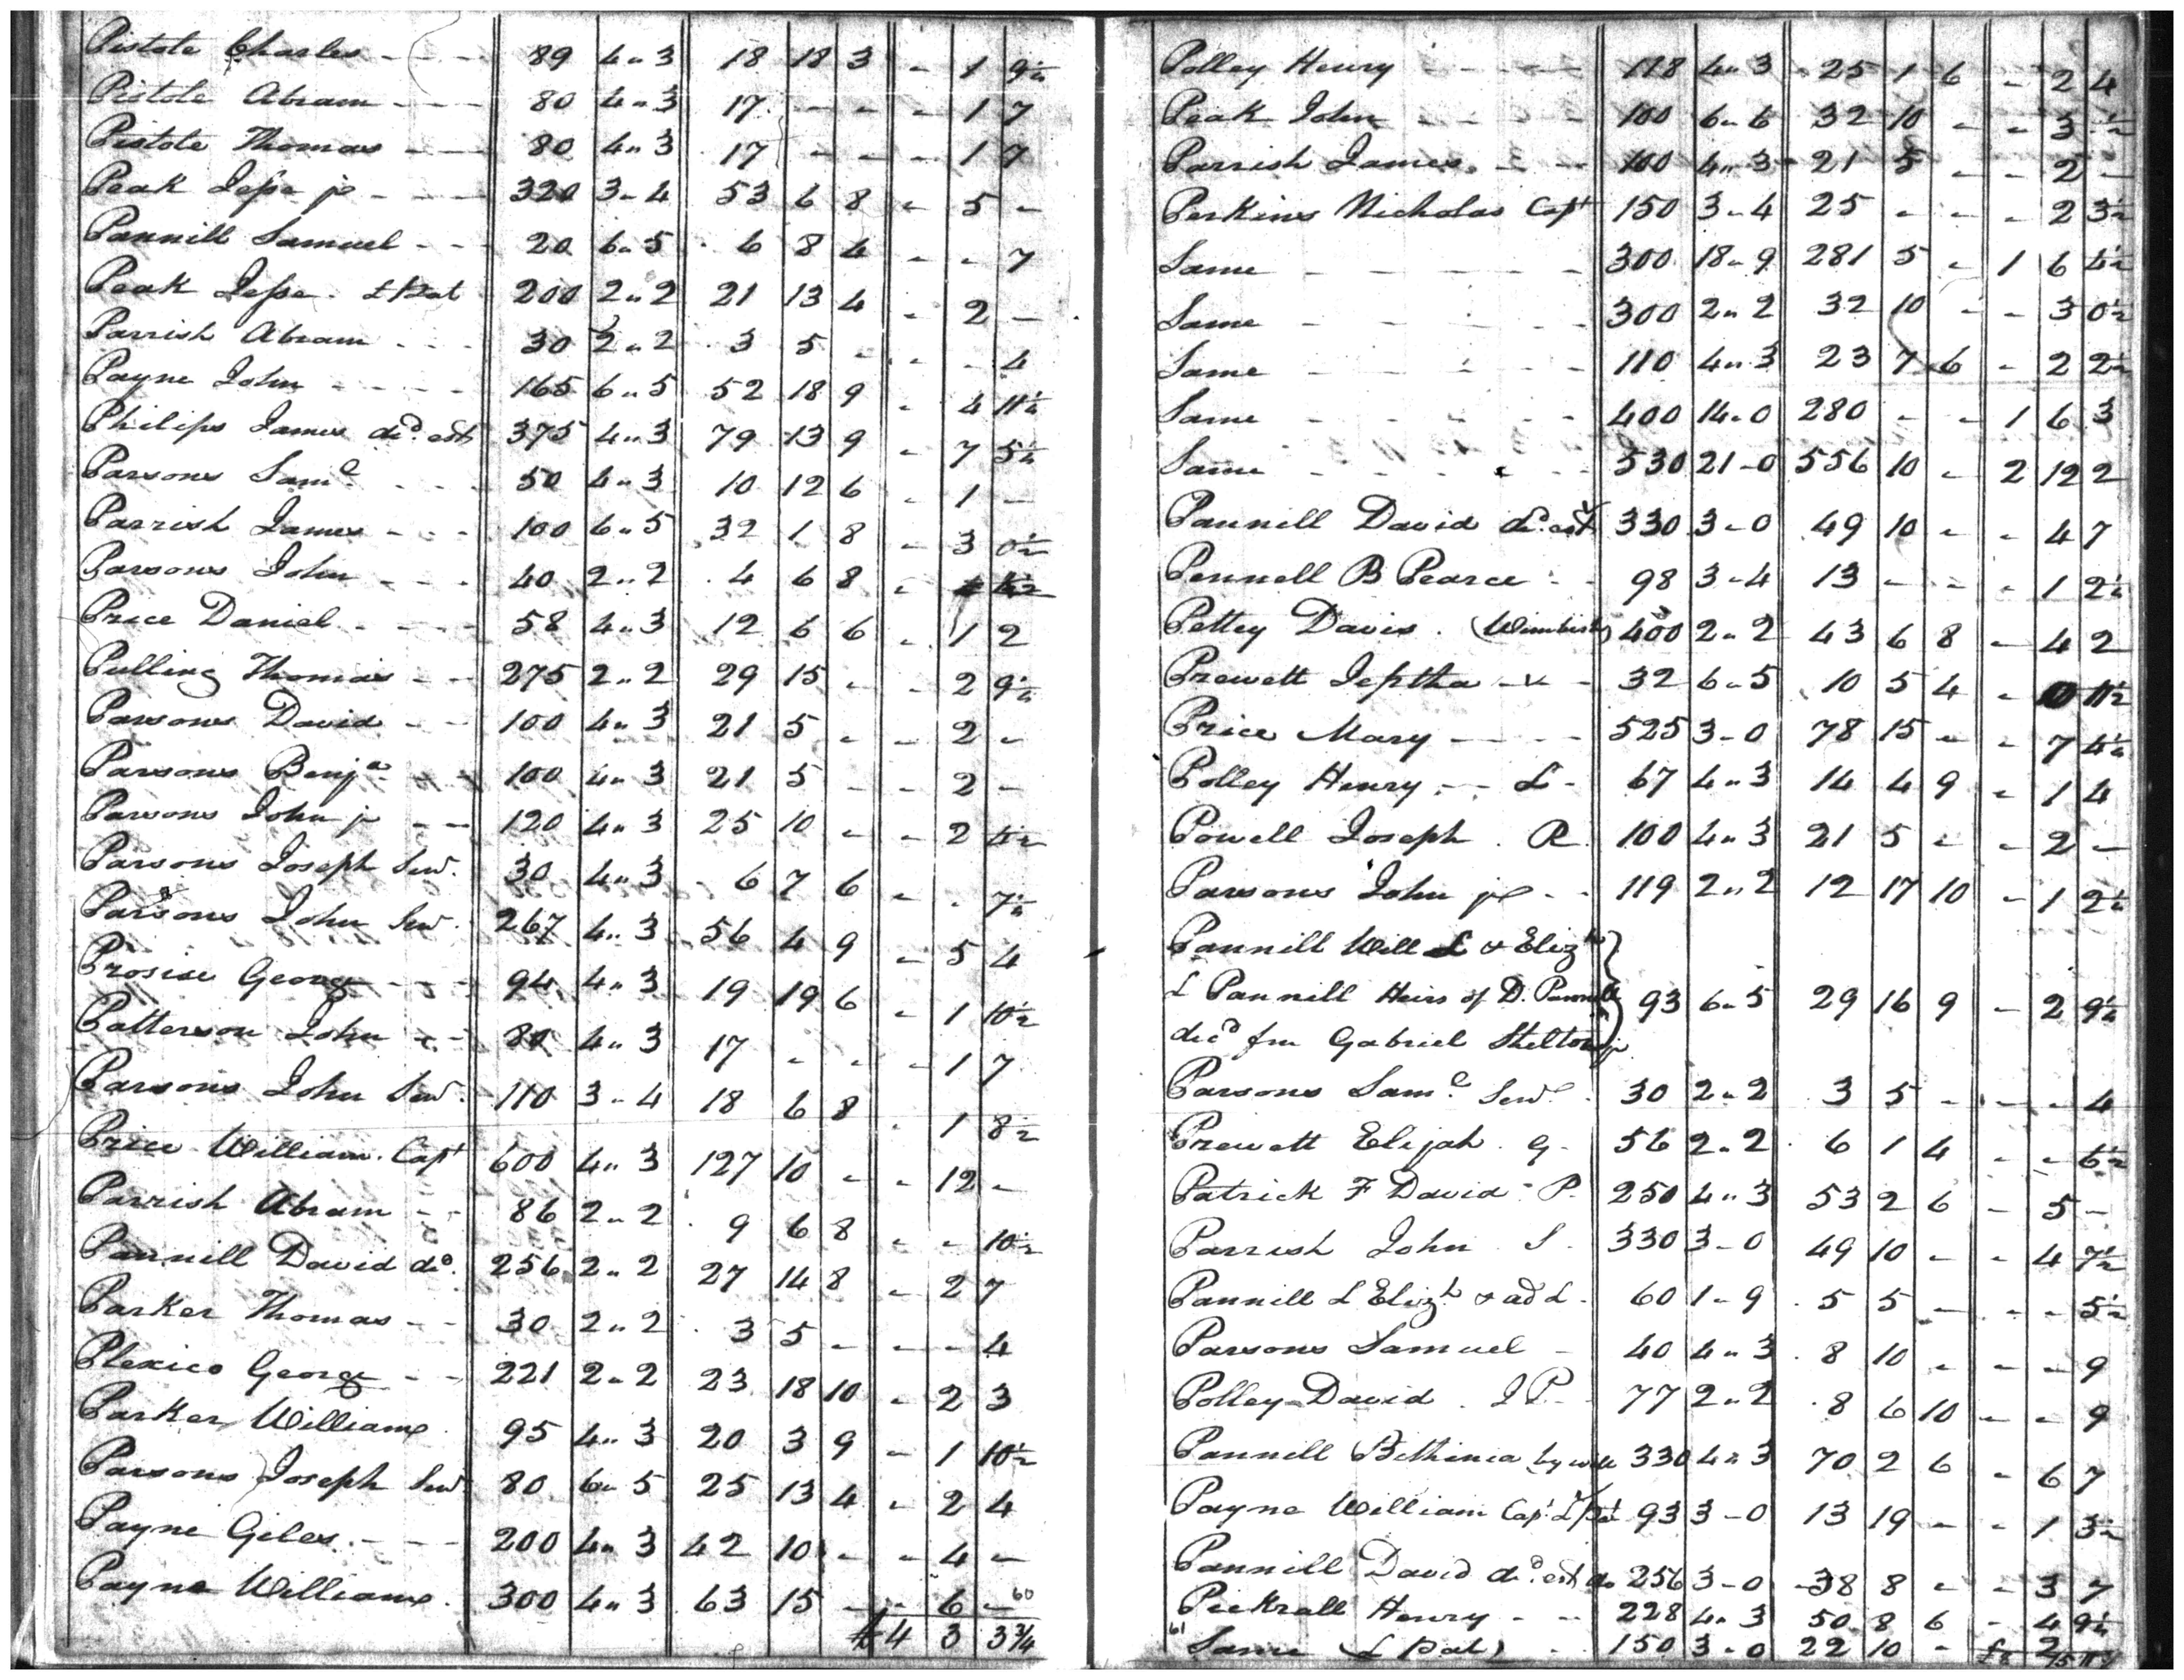 Pistole Charles - - - 89 4〃3 18 18 3 - 1 9¼
Pistole Abram - - - 80 4〃3 17 - - - 1 7
Pistole Thomas - - 80 4〃3 17 - - - 1 7
Peak Jesse jr - - - 320 3〃4 53 6 8 - 5 -
Pannill Samuel - - 20 6〃5 6 8 4 - - 7
Peak Jesse. L Pat 200 2〃2 21 13 4 - 2 -
Parrish Abram - - - 30 2〃2 3 5 - - - 4
Payne John - - - - 165 6〃5 52 18 9 - 4 11¼
Philips James decd. est 375 4〃3 79 13 9 - 7 5¼
Parsons Saml - - - 50 4〃3 10 12 6 - 1 -
Parrish James - - - 100 6〃5 32 1 8 - 3 0½
Parsons John - - - 40 2〃2 4 6 8 -
Price Daniel - - - - 58 4〃3 12 6 6 - 1 2
Pulling Thomas - - 275 2〃2 29 15 - - 2 9¼
Parsons David - - 100 4〃3 21 5 - - 2 -
Parsons Benja. - - 100 4〃3 21 5 - - 2 -
Parsons John jr - - 120 4〃3 25 10 - - 2
Parsons Joseph Senr. 30 4〃3 6 7 6 - - 7¼
Parsons John Senr. 267 4〃3 56 4 9 - 5 4
Prosise George - - - 94 4〃3 19 19 6 - 1 10½
Patterson John - - 80 4〃3 17 - - - 1 7
Parsons John Senr. 110 3〃4 18 6 8 - 1 8½
Price William. Capt 600 4〃3 127 10 - - 12 -
Parrish Abram - - 86 2〃2 9 6 8 - - 10½
Pannill David decd. 256 2〃2 27 14 8 - 2 7
Parker Thomas - - 30 2〃2 3 5 - - - 4
Plexico George - - 221 2〃2 23 18 10 - 2 3
Parker William 95 4〃3 20 3 9 - 1 10½
Parsons Joseph Senr 80 6〃5 25 13 4 - 2 4
Payne Giles - - - 200 4〃3 42 10 - - 4 -
Payne William. 300 4〃3 63 15 - - 6 - 60
£4 3 3¾
Polley Henry - - - - 118 4〃3 25 1 6 - 2 4
Peak John - - - - 100 6〃6 32 10 - - 3 ½
Parrish James - - - 100 4〃3 21 5 - - 2 -
Perkins Nicholas Capt 150 3〃4 25 - - - 2 3½
Same - - - - - 300 18〃9 281 5 - 1 6 4½
Same - - - - - 300 2〃2 32 10 - - 3 0½
Same - - - - - 110 4〃3 23 7 6 - 2 2½
Same - - - - - 400 14〃0 280 - - 1 6 3
Same - - - - - 530 21-0 556 10 - 2 12 2
Pannill David decd. est 330 3-0 49 10 - - 4 7
Pennell B Pearce - - 98 3-4 13 - - - 1 2¼
Pettey Davis. (Wimbish) 400 2〃2 43 6 8 - 4 2
Prewett Jeptha - v - 32 6〃5 10 5 4 - 0 11½
Price Mary - - - - 525 3-0 78 15 - - 7 4¼
Polley Henry - - L - 67 4〃3 14 4 9 - 1 4
Powell Joseph. R 100 4〃3 21 5 - - 2 -
Parsons John jr - - 119 2〃2 12 17 10 - 1 2¼
Pannill Will L & Elizth
L Pannill Heirs of D. Pannill 93 6〃5 29 16 9 - 2 9¼
decd fm Gabriel Shelton jr
Parsons Saml. Senr. 30 2〃2 3 5 - - - 4
Prewett Elijah. G. 56 2〃2 6 1 4 - - 6½
Patrick F David P. 250 4〃3 53 2 6 - 5 -
Parrish John S. 330 3-0 49 10 - - 4 7½
Pannill L Elizh & ad L. 60 1-9 5 5 - - - 5½
Parsons Samuel - 40 4〃3 8 10 - - - 9
Polley David. J P. 77 2〃2 8 6 10 - - 9
Pannill Bethinia by will 330 4〃3 70 2 6 - 6 7
Payne William Capt L Pat 93 3-0 13 19 - - 1 3½
Pannill David decd. est do 256 3-0 38 8 - - 3 7
Pickrall Henry - - 228 4〃3 50 8 6 - 4 9¼
61 Same (L Pat) - 150 3-0 22 10 -